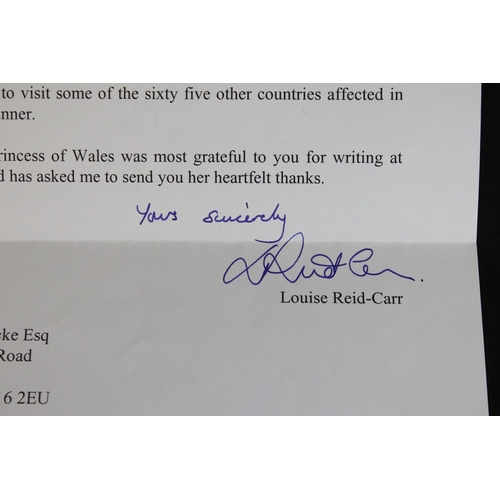 to visit some of the sixty five other countries affected in
nner.
rincess of Wales was most grateful to you for writing at
d has asked me to send you her heartfelt thanks.
Yours sincerely
Louise Reid-Carr
cke Esq
Road
6 2EU